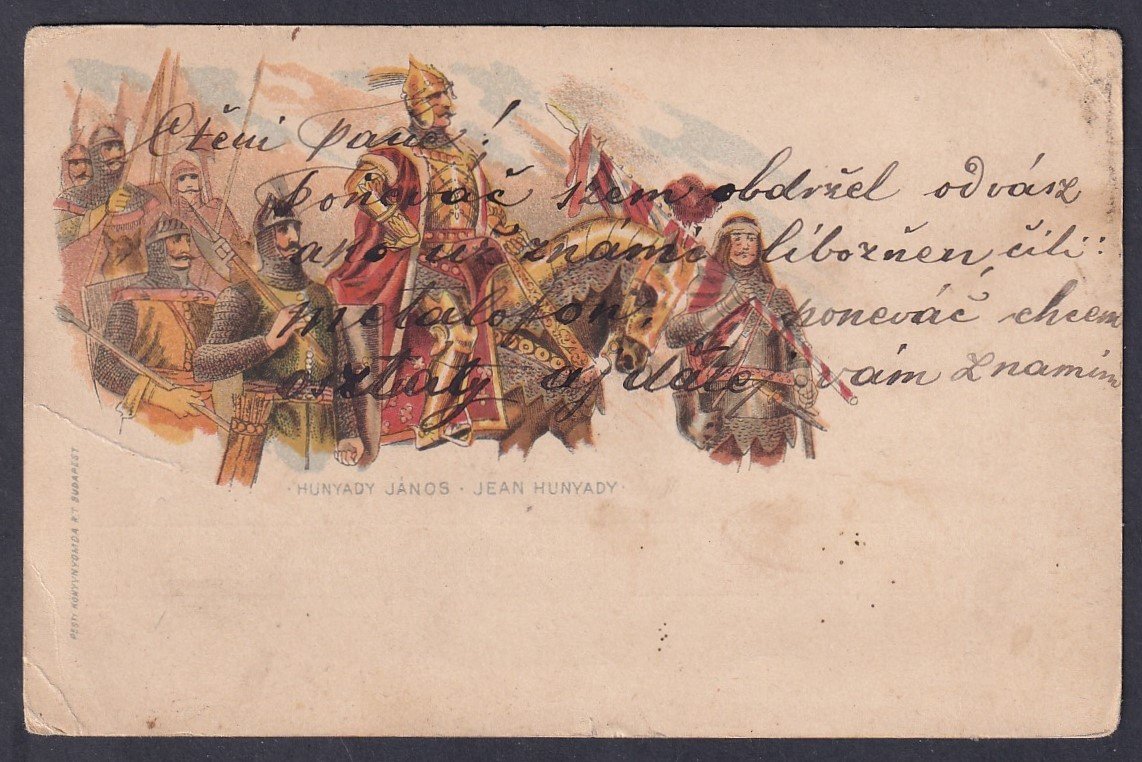 Ctěni pane!
Ponevač szem obdržel odvász
ano už známi libozněn, čili:
metalofón, ponevác chcem
osztátý a dále, vám znamim
HUNYADY JÁNOS · JEAN HUNYADY
PESTI KÖNYVNYOMDA R.T. BUDAPEST